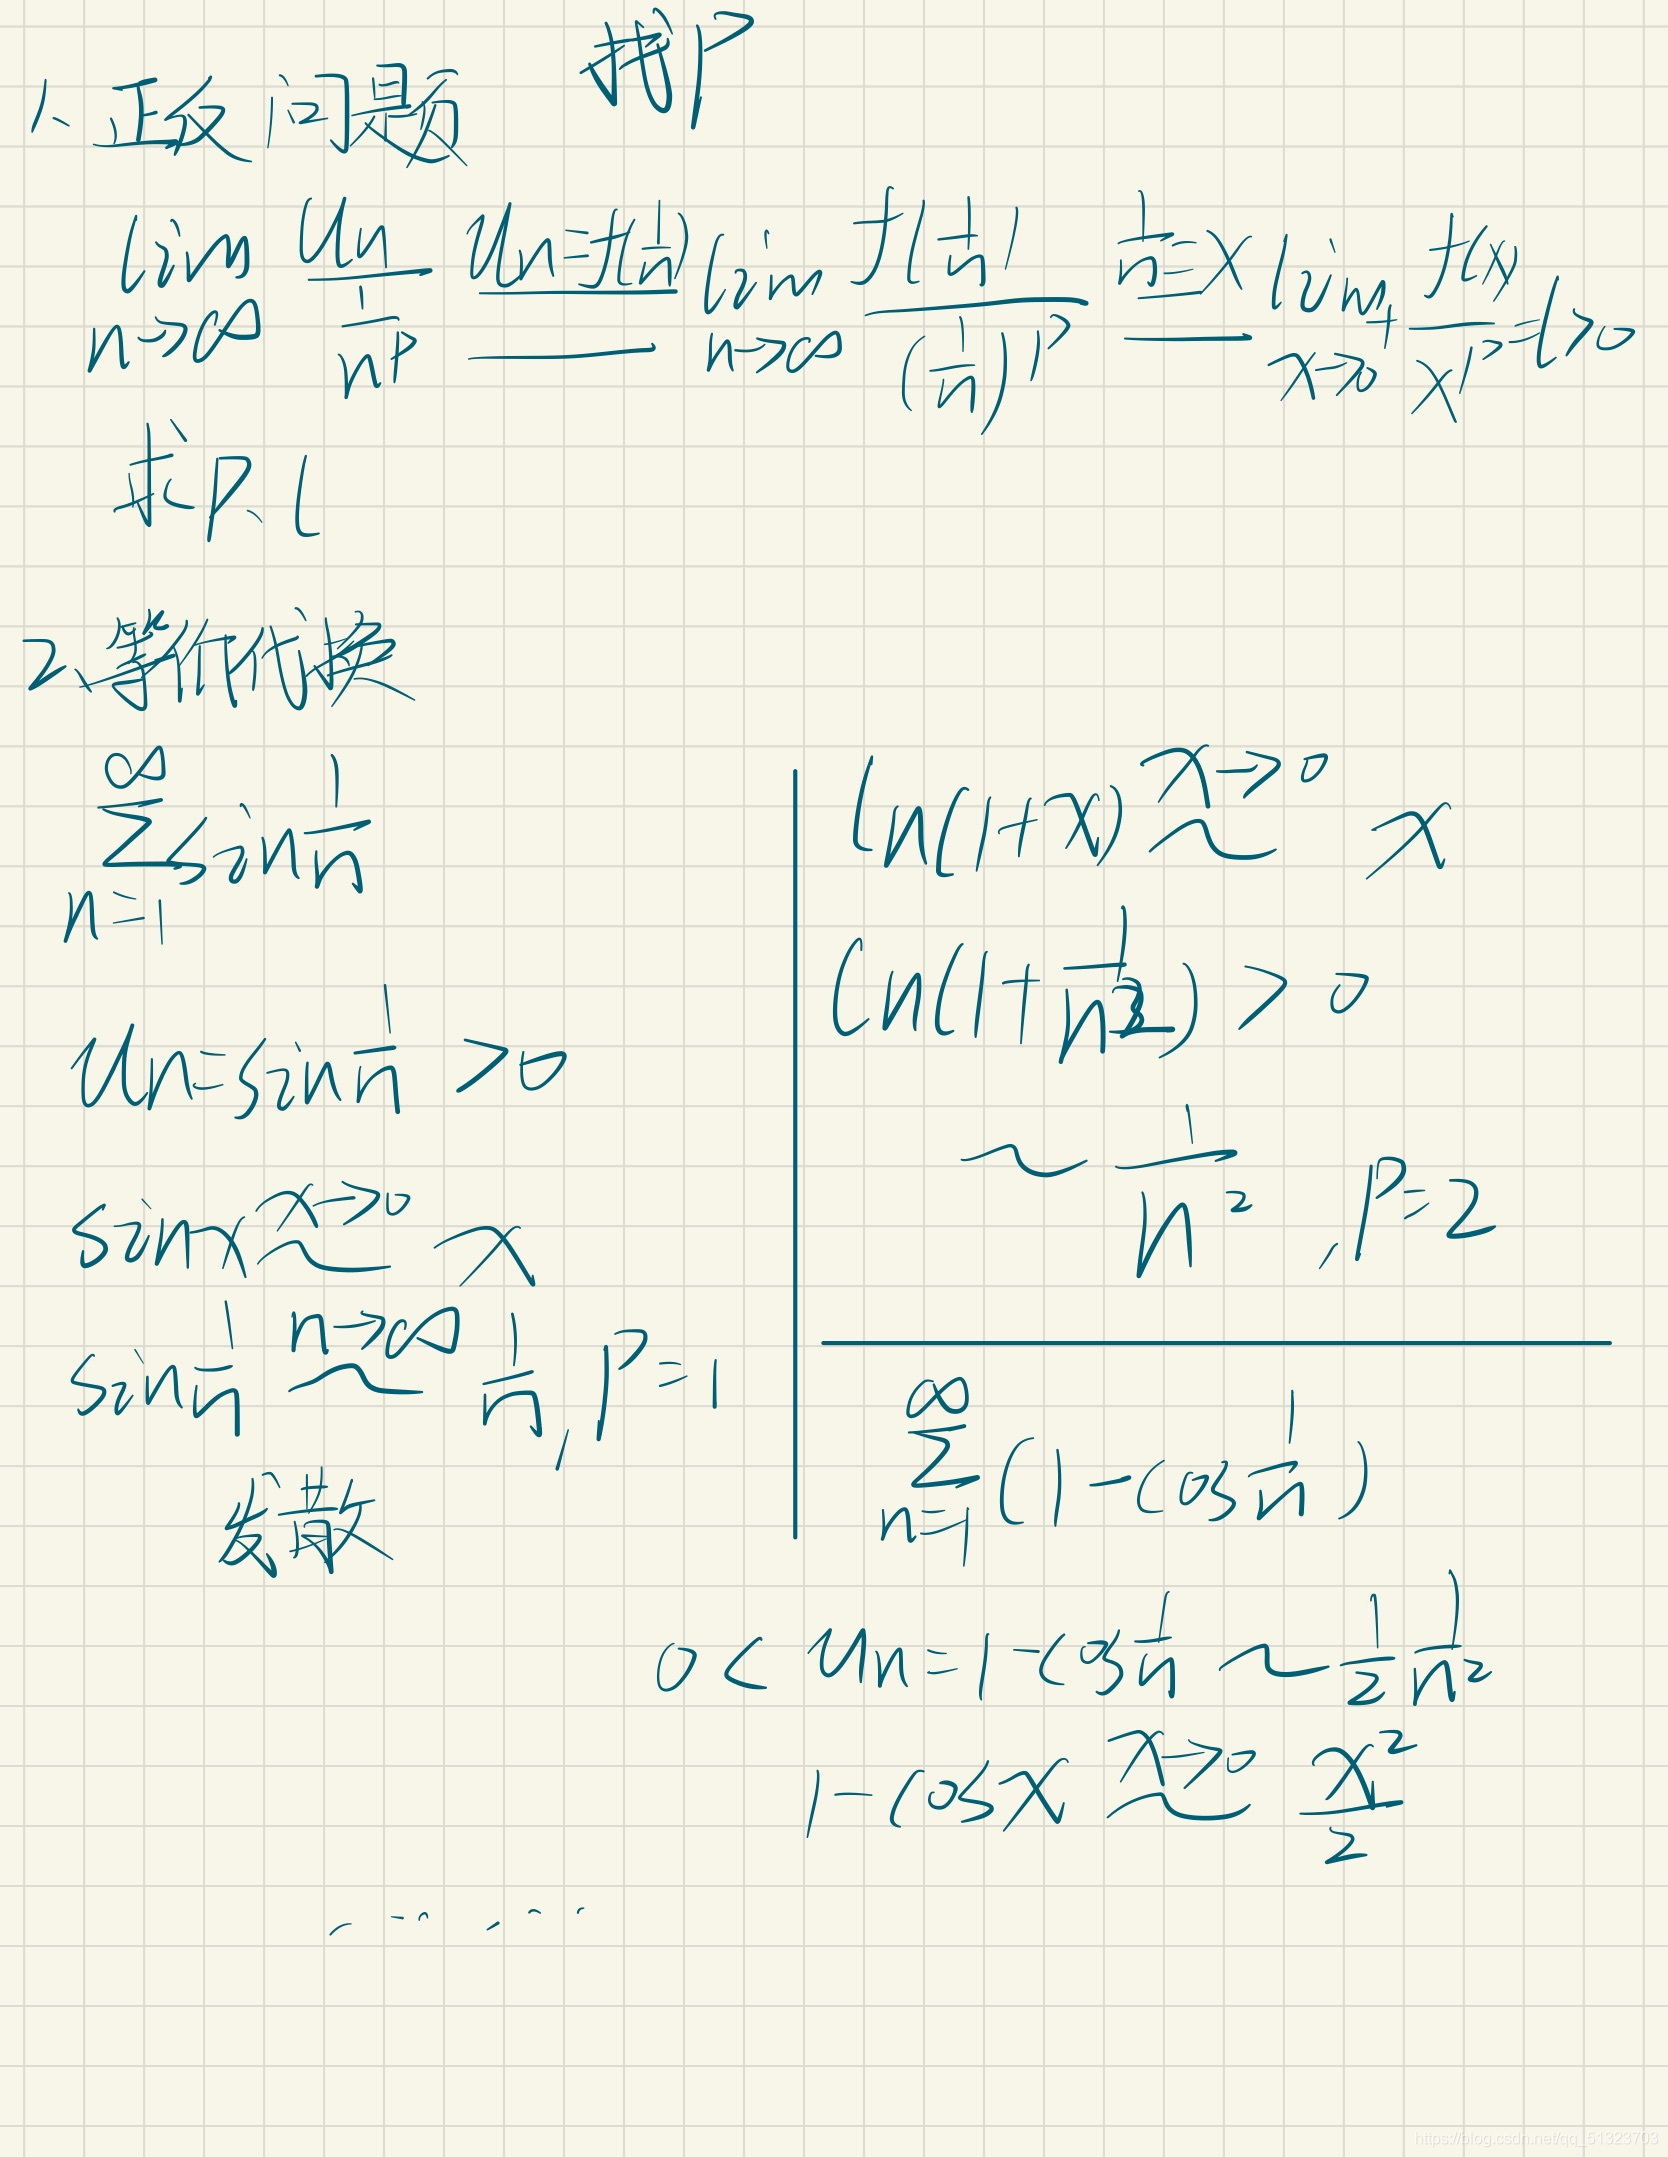 找P
1、正反问题
lim n→∞ Un/(1/n^P) Un=f(1/n) lim n→∞ f(1/n)/(1/n)^P 1/n=x lim x→0⁺ f(x)/x^P =l>0
求P、l
2、等价代换
∞ ∑ n=1 sin 1/n
Un=sin 1/n >0
sinx x→0 ~ x
sin 1/n n→∞ ~ 1/n, P=1
发散
ln(1+x) x→0 ~ x
ln(1+1/n²) > 0
~ 1/n² , P=2
∞ ∑ n=1 (1-cos 1/n)
0 < Un=1-cos 1/n ~ 1/2 1/n²
1-cosx x→0 ~ x²/2
https://blog.csdn.net/qq_51323703